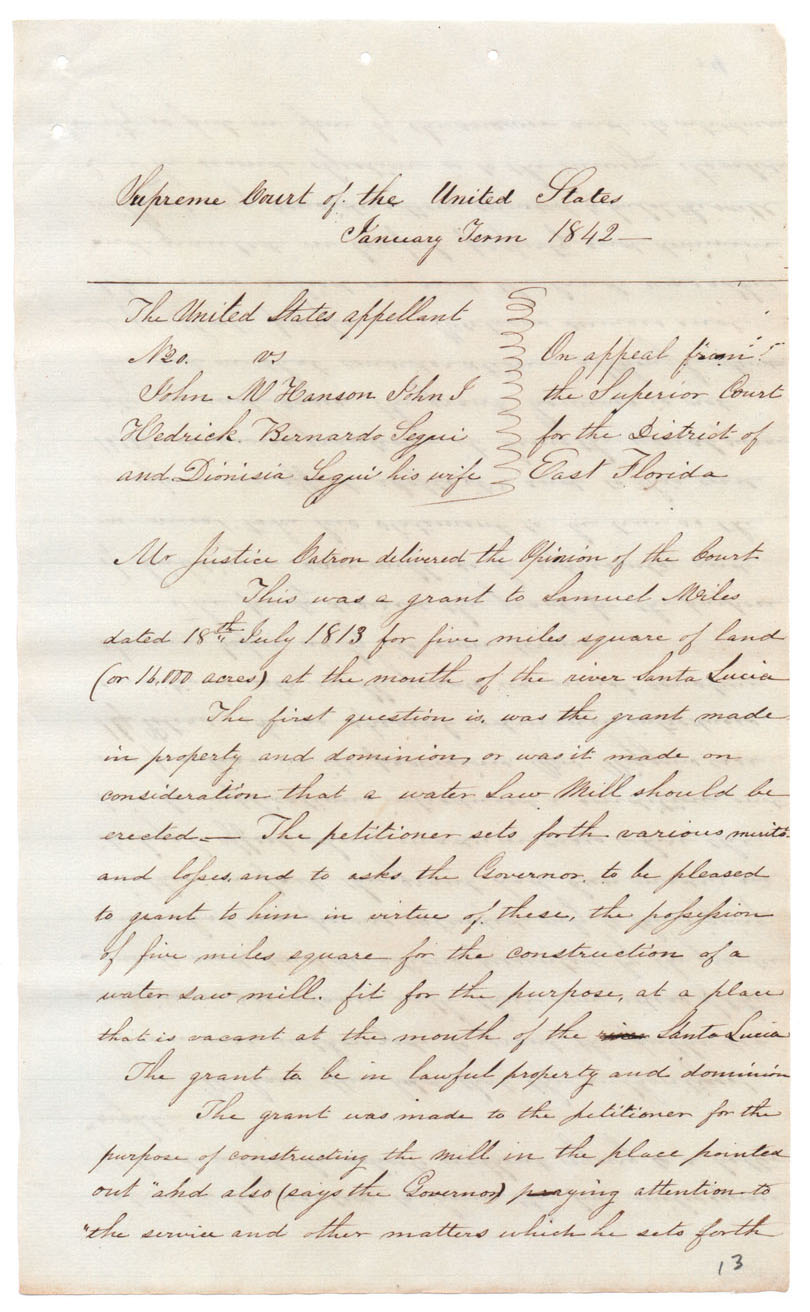 Supreme Court of the United States
January Term 1842—
The United States appellant
No. vs
John M Hanson John J
Hedrick Bernardo Segui
and Dionisia Segui his wife
On appeal from
the Superior Court
for the District of
East Florida
Mr Justice Catron delivered the Opinion of the Court
This was a grant to Samuel Miles
dated 18th July 1813 for five miles square of land
(or 16,000 acres) at the mouth of the river Santa Lucia
The first question is, was the grant made
in property and dominion, or was it made on
consideration that a water Saw Mill should be
erected— The petitioner sets forth various merits
and losses, and to asks the Governor, to be pleased
to grant to him in virtue of these, the possession
of five miles square for the construction of a
water saw mill. fit for the purpose, at a place
that is vacant at the mouth of the river Santa Lucia
The grant to be in lawful property and dominion
The grant was made to the petitioner for the
purpose of constructing the mill in the place pointed
out "and also (says the Governor) paying attention to
"the service and other matters which he sets forth
13